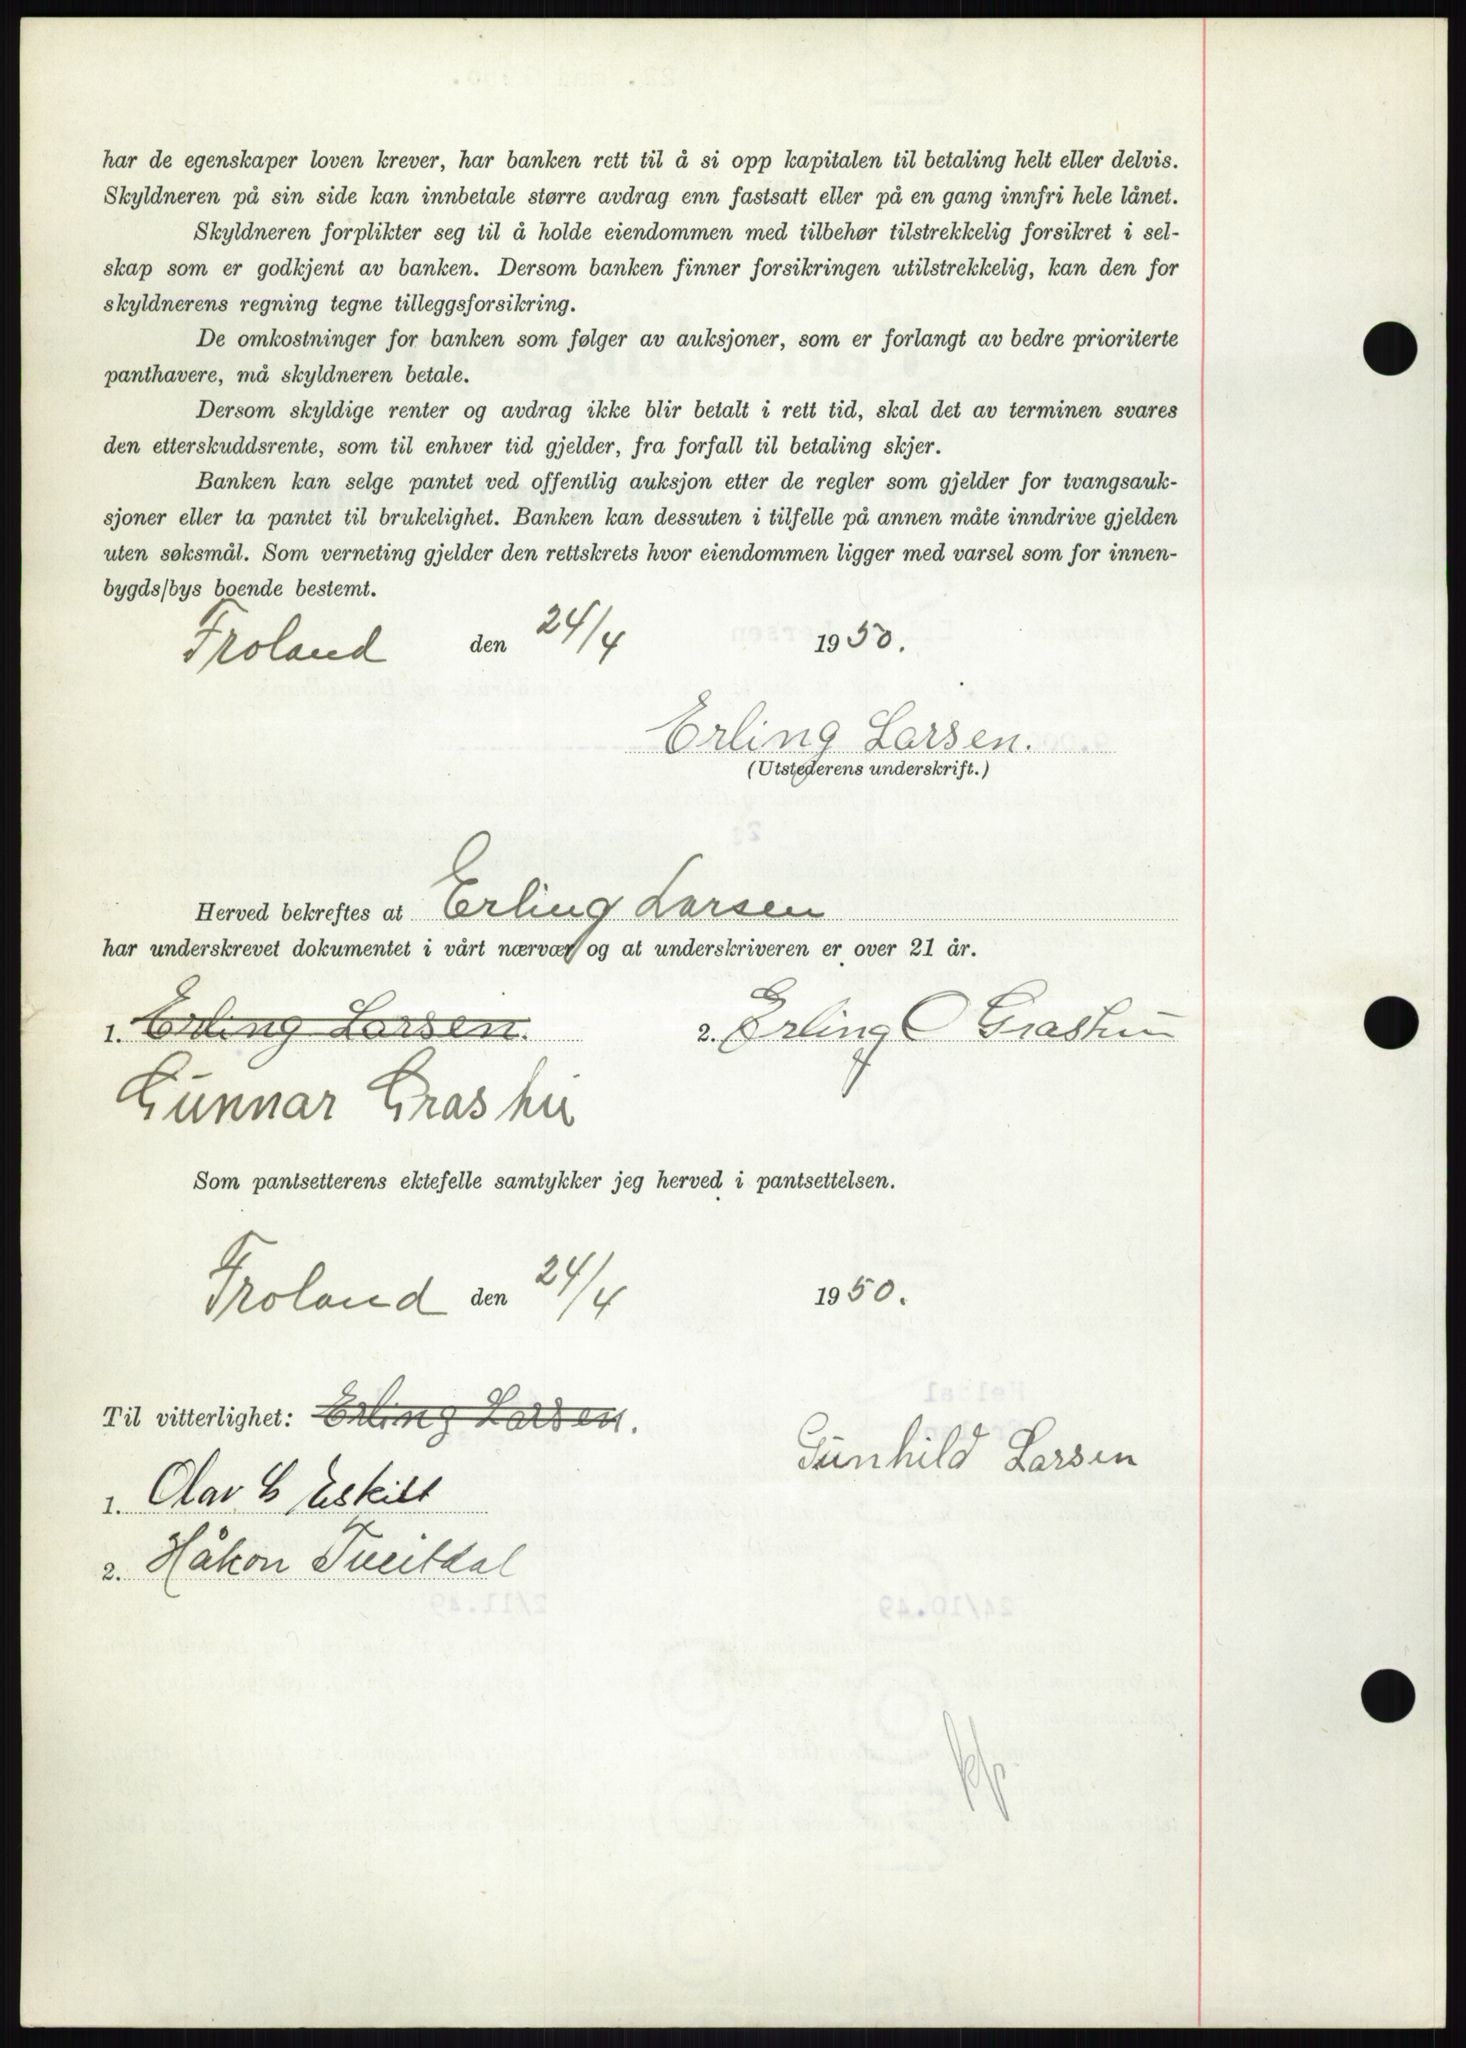 har de egenskaper loven krever, har banken rett til å si opp kapitalen til betaling helt eller delvis.
Skyldneren på sin side kan innbetale større avdrag enn fastsatt eller på en gang innfri hele lånet.
Skyldneren forplikter seg til å holde eiendommen med tilbehør tilstrekkelig forsikret i sel-
skap som er godkjent av banken. Dersom banken finner forsikringen utilstrekkelig, kan den for
skyldnerens regning tegne tilleggsforsikring.
De omkostninger for banken som følger av auksjoner, som er forlangt av bedre prioriterte
panthavere, må skyldneren betale.
Dersom skyldige renter og avdrag ikke blir betalt i rett tid, skal det av terminen svares
den etterskuddsrente, som til enhver tid gjelder, fra forfall til betaling skjer.
Banken kan selge pantet ved offentlig auksjon etter de regler som gjelder for tvangsauk-
sjoner eller ta pantet til brukelighet. Banken kan dessuten i tilfelle på annen måte inndrive gjelden
uten søksmål. Som verneting gjelder den rettskrets hvor eiendommen ligger med varsel som for innen-
bygds/bys boende bestemt.
Froland den 24/4 1950.
Erling Larsen.
(Utstederens underskrift.)
Herved bekreftes at Erling Larsen
har underskrevet dokumentet i vårt nærvær og at underskriveren er over 21 år.
1. Erling Larsen. 2. Erling O Grashei
Gunnar Grashei
Som pantsetterens ektefelle samtykker jeg herved i pantsettelsen.
Froland den 24/4 1950.
Til vitterlighet: Erling Larsen.
Gunhild Larsen
1. Olav Eskilt
2. Håkon Tveitdal